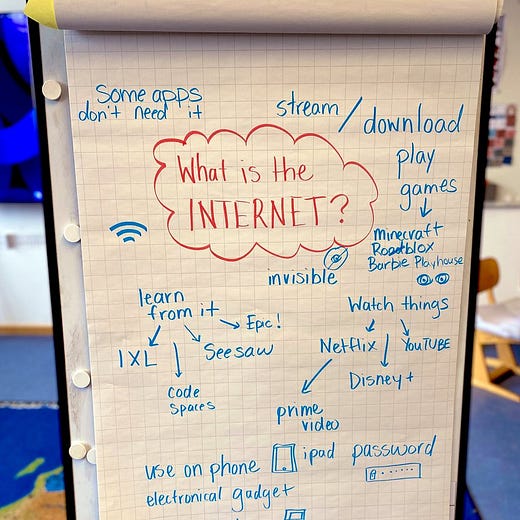 Some apps
don't need it
stream / download
What is the
INTERNET?
play
games
minecraft
Roadblox
Barbie Playhouse
invisible
learn
from it
Epic!
IXL
Seesaw
Code
Spaces
Watch things
Netflix
YouTUBE
Disney+
prime
video
use on phone
ipad
password
electronical gadget